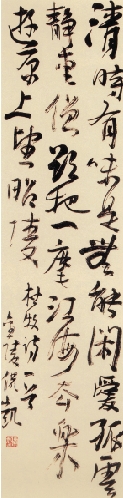 清時有味是無能閑愛孤雲
靜愛僧欲把一麾江海去樂
遊原上望昭陵
杜牧詩一首